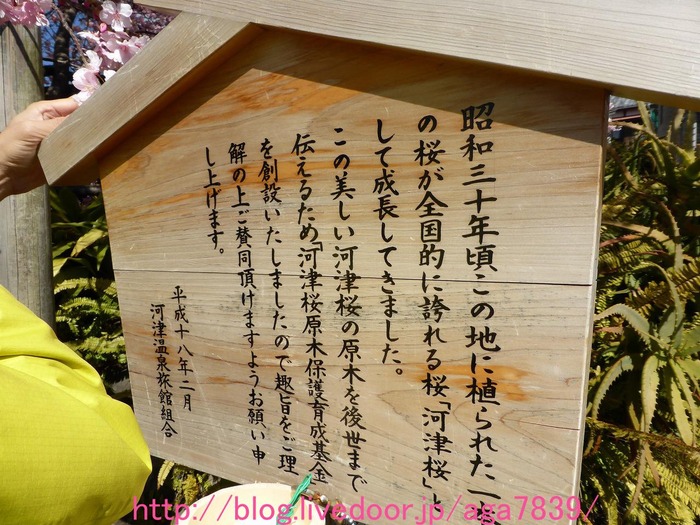 昭和三十年頃この地に植られた一
の桜が全国的に誇れる桜「河津桜」と
して成長してきました。
この美しい河津桜の原木を後世まで
伝えるため「河津桜原木保護育成基金
を創設いたしましたので趣旨をご理
解の上ご賛同頂けますようお願い申
し上げます。
平成十八年二月
河津温泉旅館組合
http://blog.livedoor.jp/aga7839/